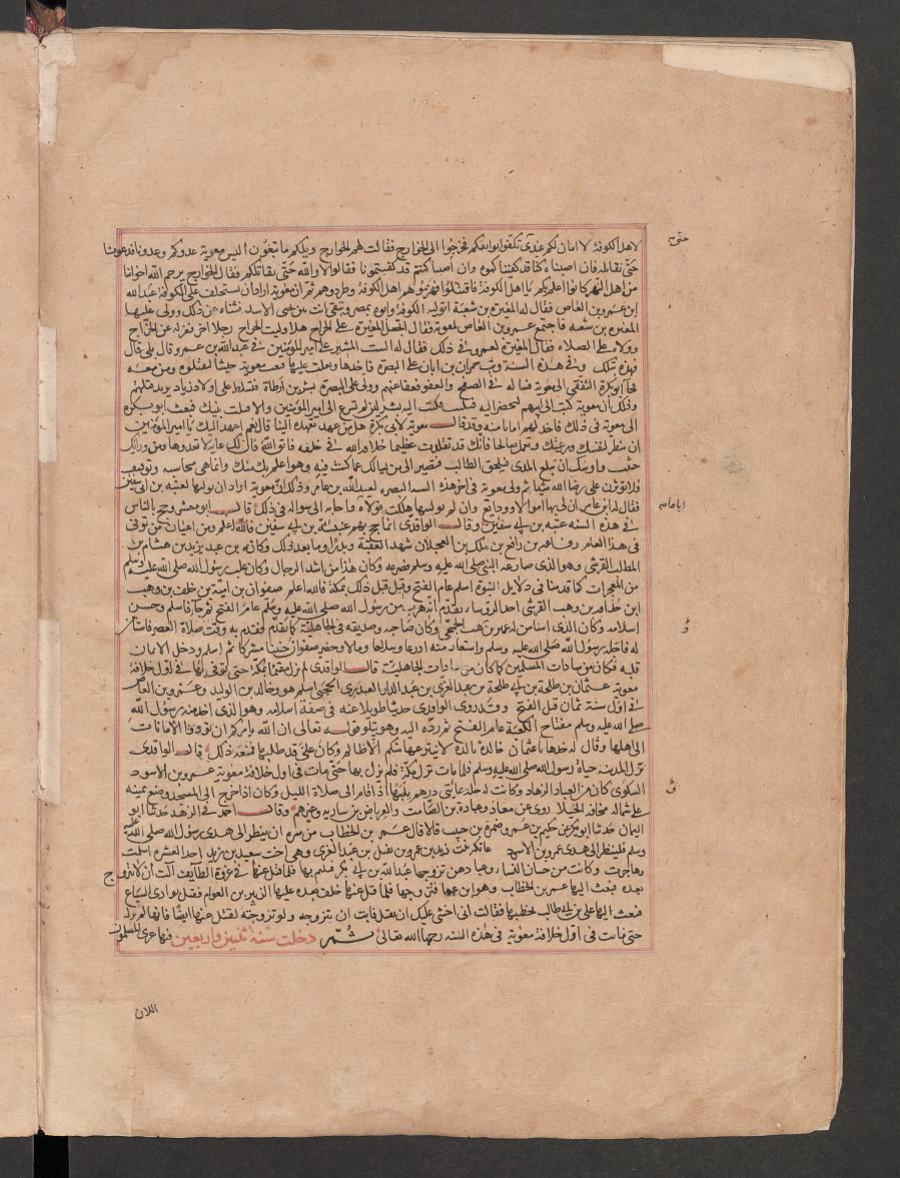 لاهل الكوفة لا امان لكم عندى تكفوا بوايقكم فخرجوا الى الخوارج فقالت لهم الخوارج ويلكم ما تبغون اليس معوية عدوكم وعدونا فدعونا
حتى نقاتله فان اصبناه كنا قد كفيناكموه وان اصابنا كنتم قد كفيتمونا فقالوا لا والله حتى نقاتلكم فقال الخوارج يرحم الله اخواننا
من اهل النهر كانوا اعلم بكم يا اهل الكوفة فاقتتلوا فهزموهم اهل الكوفة وطردوهم ثم ان معوية اراد ان يستخلف على الكوفة عبد الله
ابن عمرو بن العاص فقال له المغيرة بن شعبة اتوليه الكوفة وابوه بمصر وتبقى انت بين لحيى الاسد فثناه عن ذلك وولى عليها
المغيرة بن شعبة فاجتمع عمرو بن العاص بمعوية فقال اتجعل المغيرة على الخراج هلا وليت الخراج رجلا اخر فعزله عن الخراج
وولاه على الصلاة فقال المغيرة لعمرو في ذلك فقال له الست المشير على امير المؤمنين في عبد الله بن عمرو قال بلى قال
فهذه بتلك وفي هذه السنة وثب حمران بن ابان على البصرة فاخذها وتغلب عليها فبعث معوية جيشا ليقتلوه ومن معه
فجا ابو بكرة الثقفي الى معوية فساله في الصفح والعفو فعفا عنهم وولى على البصرة بسر بن ارطاة فتسلط على اولاد زياد يريد قتلهم
وذلك ان معوية كتب الى ابيهم ليحضر اليه فلبث فكتب اليه بسر لئن لم تسرع الى امير المؤمنين والا قتلت بنيك فبعث ابو بكرة
الى معوية في ذلك فاخذ لهم امانا منه وقد قال معوية لابي بكرة هل من عهد تعهده الينا قال نعم اعهد اليك يا امير المؤمنين
ان تنظر لنفسك ورعيتك وتعمل صالحا فانك قد تقلدت عظيما خلافة الله في خلقه فاتق الله فان لك غاية لا تعدوها ومن ورائك
طالب حثيث واوشك ان تبلغ المدى فيلحق الطالب فتصير الى من يسالك عما كنت فيه وهو اعلم به منك وانما هي محاسبة وتوقيف
فلا تؤثرن على رضا الله شيا ثم ولى معوية في اخر هذه السنة البصرة لعبد الله بن عامر وذلك ان معوية اراد ان يوليها لعتبة بن ابي سفين
فقال له ابن عامر ان لي بها اموالا وودايع وان لم توليها هلكت فولاه واجابه الى سواله في ذلك قال ابو معشر وحج بالناس
في هذه السنة عتبة بن ابي سفين وقال الواقدى انما حج بهم عنبسة بن ابي سفين فالله اعلم ومن اعيان من توفى
في هذا العام رفاعة بن رافع بن ملك بن العجلان شهد العقبة وبدرا وما بعد ذلك وركانة بن عبد يزيد بن هشام بن
المطلب القرشي وهو الذى صارعه النبي صلى الله عليه وسلم فصرعه وكان هذا من اشد الرجال وكان غلب رسول الله صلى الله عليه وسلم
من المعجزات كما قدمنا في دلايل النبوة اسلم عام الفتح وقيل قبل ذلك بمكة فالله اعلم صفوان بن امية بن خلف بن وهب
ابن حذافة بن وهب القرشي احد الروسا تقدم انه هرب من رسول الله صلى الله عليه وسلم عام الفتح ثم جا فاسلم وحسن
اسلامه وكان الذى استامن له عمير بن وهب الجمحي وكان صاحبه وصديقه في الجاهلية كما تقدم وقدم به وقت صلاة العصر فاستامن
له فاجله رسول الله صلى الله عليه وسلم واستعار منه ادرعا وسلاحا ومالا وحضر صفوان حنينا مشركا ثم اسلم ودخل الايمان
قلبه فكان من سادات المسلمين كما كان من سادات الجاهلية قال الواقدى لم يزل مقيما بمكة حتى توفى بها في اول خلافة
معوية عثمان بن طلحة بن ابي طلحة بن عبد العزى بن عبد الدار العبدرى الحجبي اسلم هو وخالد بن الوليد وعمرو بن العاص
في اول سنة ثمان قبل الفتح وقد روى الواقدى حديثا طويلا عنه في صفة اسلامه وهو الذى اخذ منه رسول الله
صلى الله عليه وسلم مفتاح الكعبة عام الفتح ثم رده اليه وهو يتلو قوله تعالى ان الله يامركم ان تؤدوا الامانات
الى اهلها وقال له خذها يا عثمان خالدة تالدة لا ينتزعها منكم الا ظالم وكان على قد طلبها فمنعه ذلك قال الواقدى
نزل المدينة حياة رسول الله صلى الله عليه وسلم فلما مات نزل مكة فلم يزل بها حتى مات في اول خلافة معوية عمرو بن الاسود
السكونى كان من العباد الزهاد وكانت له حلة بمايتى درهم يلبسها اذا قام الى صلاة الليل وكان اذا خرج الى المسجد وضع يمينه
على شماله مخافة الخيلا روى عن معاذ وعبادة بن الصامت والعرباض بن سارية وغيرهم وقال احمد في الزهد حدثنا ابو
اليمان حدثنا ابو بكر عن حكيم بن عمير وضمرة بن حبيب قالا قال عمر بن الخطاب من سره ان ينظر الى هدى رسول الله صلى الله عليه
وسلم فلينظر الى هدى عمرو بن الاسود عاتكة بنت زيد بن عمرو بن نفيل بن عبد العزى وهي اخت سعيد بن زيد احد العشرة اسلمت
وهاجرت وكانت من حسان النساء وعبادهن تزوجها عبد الله بن ابي بكر فتيم بها فلما قتل عنها في غزوة الطايف آلت ان لا تتزوج
بعده فبعث اليها عمر بن الخطاب وهو ابن عمها فتزوجها فلما قتل عنها خلف بعده عليها الزبير بن العوام فقتل بوادى السباع
فبعث اليها على بن ابي طالب يخطبها فقالت اني اخشى عليك ان تقتل فابت ان تتزوجه ولو تزوجته لقتل عنها ايضا فانها لم تزل
حتى ماتت في اول خلافة معوية في هذه السنة رحمها الله تعالى ثم دخلت سنة ثنتين واربعين فيها غزى المسلمون
اللان